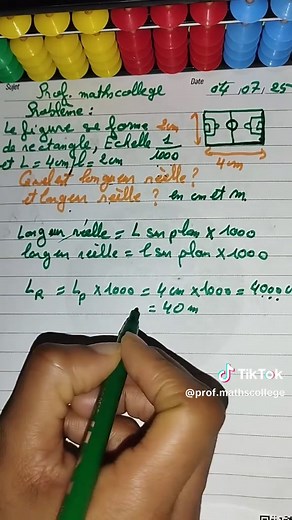 Sujet Date
Prof. mathscollege 04.07.25
Problème:
La figure de forme 2cm
de rectangle, Echelle 1/1000
et L = 4cm, l = 2cm 4cm
Quel est longueur réelle?
et largeur réelle? en cm et m.
Longueur réelle = L sur plan x 1000
largeur réelle = l sur plan x 1000
LR = Lp x 1000 = 4 cm x 1000 = 4000c
= 40 m
TikTok
@prof.mathscollege